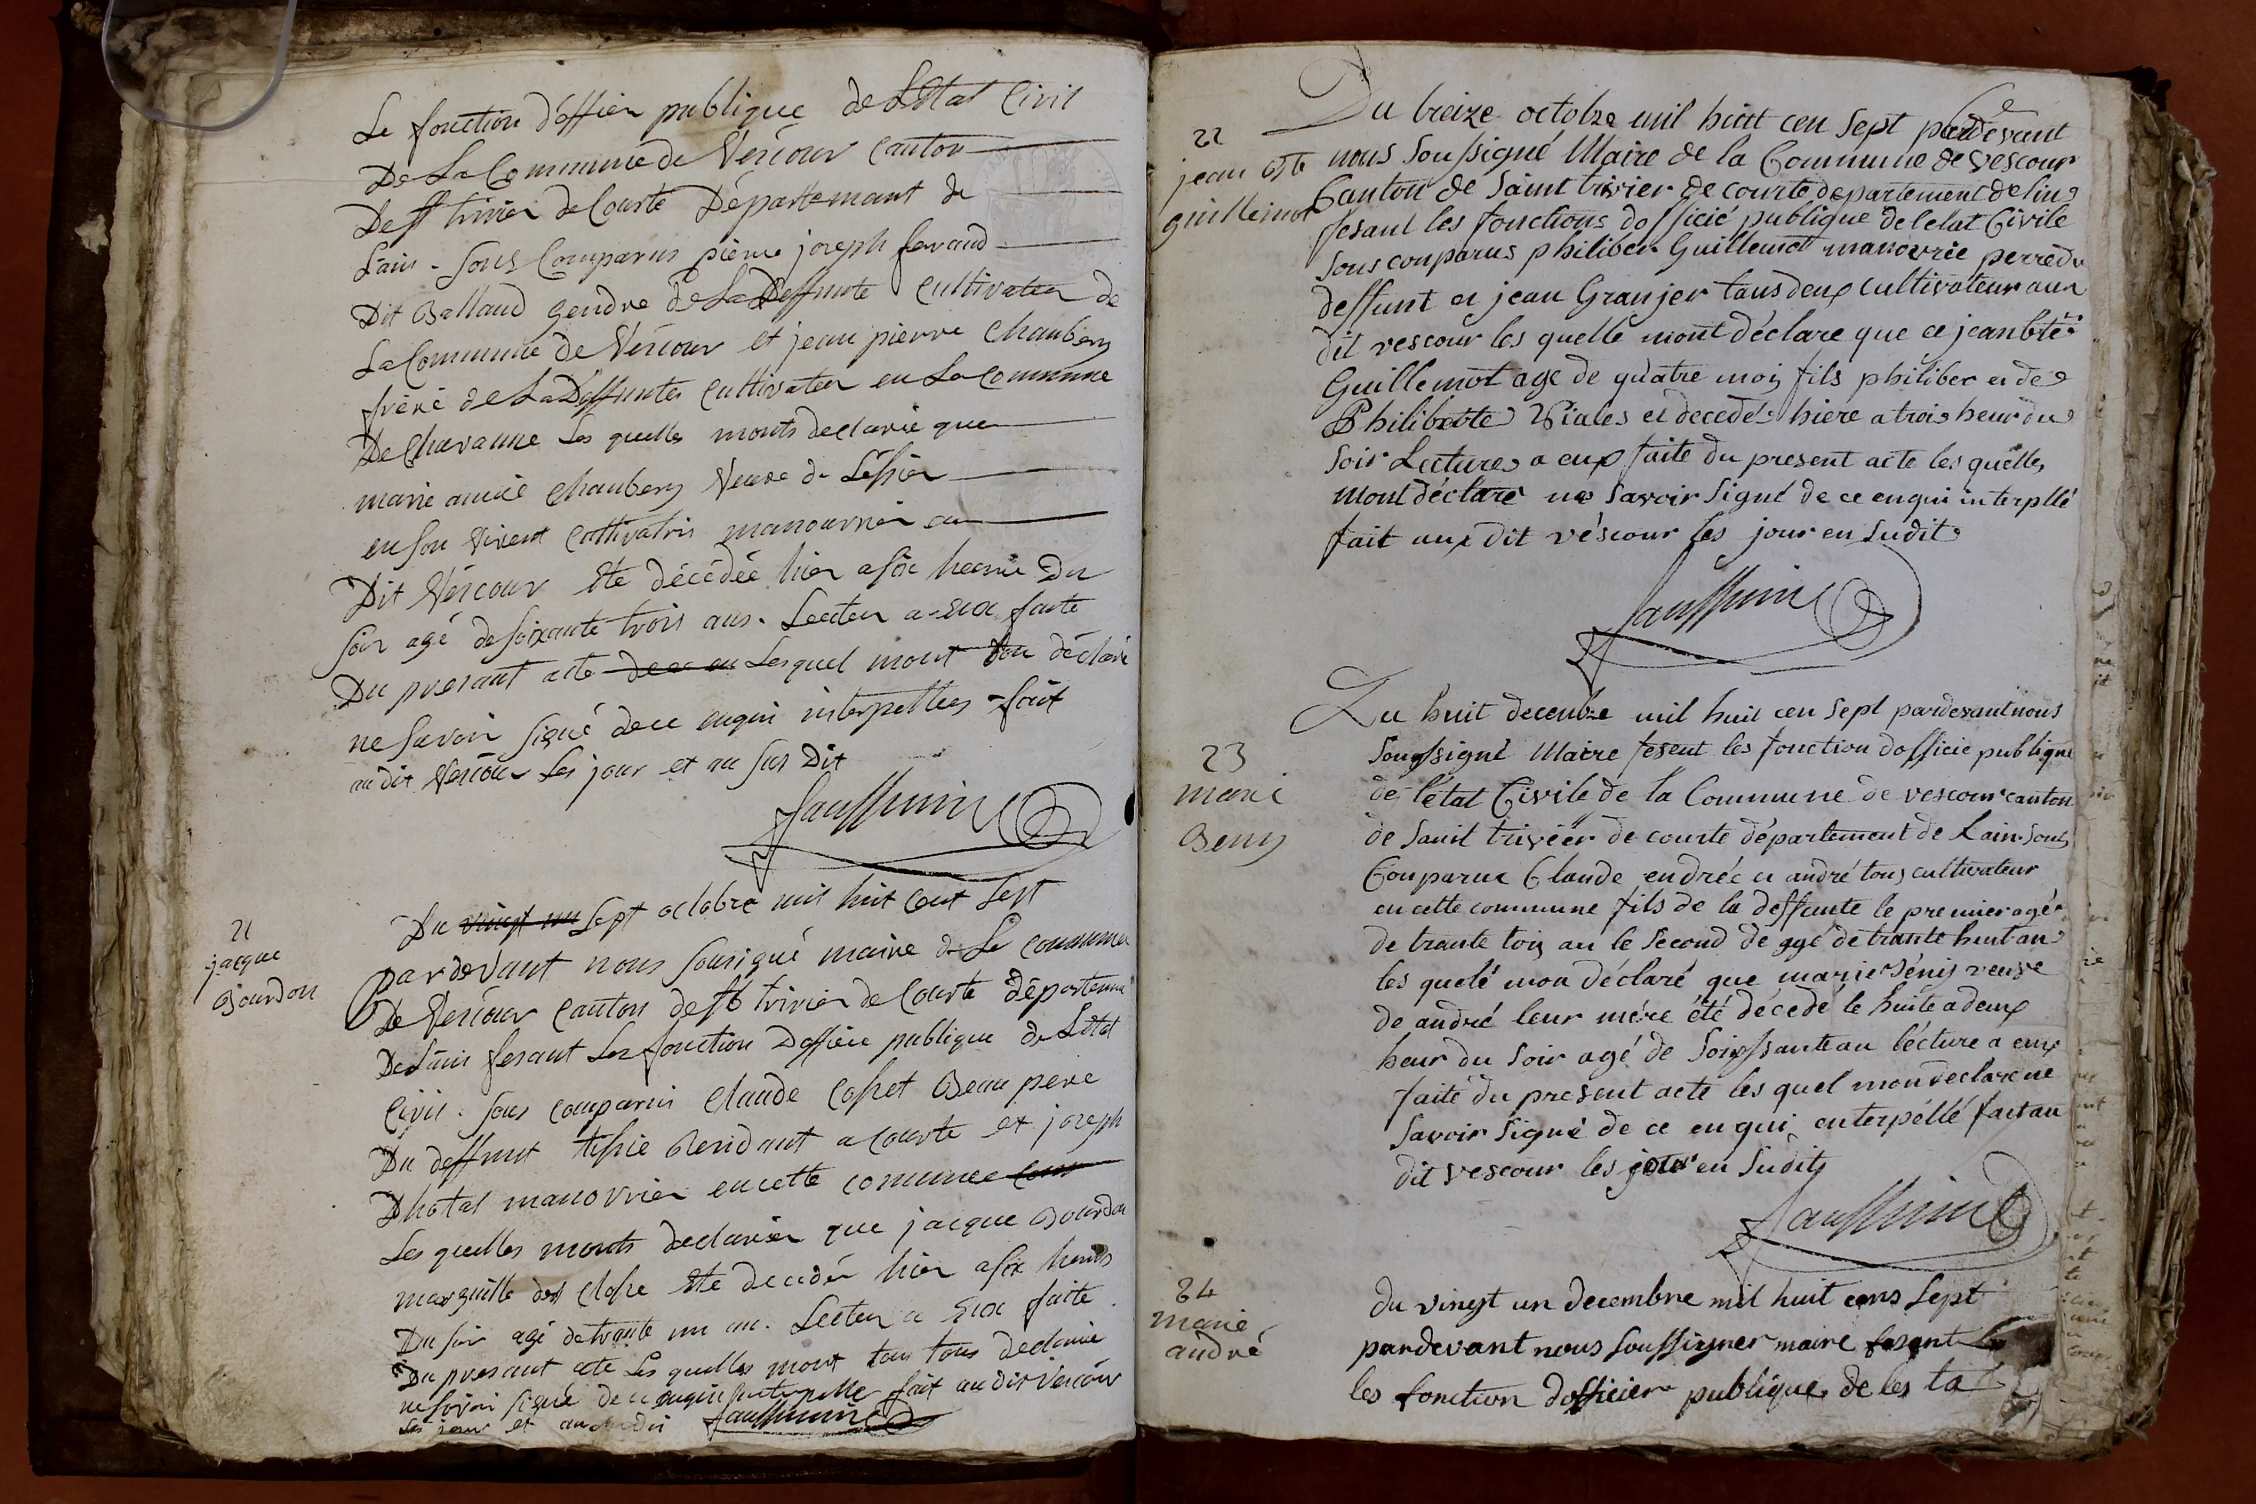 Le fonction d'offier publique de L'Etat Civil
De La Commune de Vescour Canton
De St trivier de Courte Département de
L'ain. Sont Comparus pierre joseph feraud
Dit Balland gendre de La Deffunte Cultivateur de
La Commune de Vescour et jean pierre Chaubery
frere de La Deffuntes Cultivateur en La Commune
De Chavanne Les quelles monts declarié que
marie amie Chaubery Veuve de
en son vivent Cultivatris manouvrier au
Dit Vescour ete décédée hier a six heure Du
soir agé de soixante trois ans. Lecteu a eux faite
Du presant acte Lesquel mont déclaré
ne savoir signé de ce enquis interpelles fait
au dit Vescour Les jour et an sus Dit
Faussurin
21
jacque
Bourdon
Du vingt un sept octobre mil huit Cent Sept
par devant nous sousigué maire de La commune
De Vescour Canton de St trivier de Courte département
De L'ain fesant Les fonction D'offier publique de L'Etat
Civil. sous comparus Claude Cochet Beau pere
Du deffunt Residant a Courte et joseph
Dhotal manovrier en cette commune
Les quelles monts declarier que jacque Bourdon
ete decidér hier a six heures
Du soir agé de trante un an. Lecteu a Eux faite
Du presant acte Les quelles mont tous declarie
ne savoir signé de ce enquis interpelle fait au dit Vescour
Les jour et an susdit Faussurin
22
jean Bte
guillemot
Du treize octobre mil huit cen sept par devant
nous soussigné Maire de la Commune de Vescour
Canton de Saint trivier de courte departement de lin
fesant les fonctions dofficié publique de l'etat Civile
sous conparus philiber Guillemot manovrie perre du
deffunt et jean Granjer tous deux cultivateur aux
dit vescour les quelle mont déclare que ce jean bte
Guillemot age de quatre mois fils philiber et de
Philiberte Viales et decedé hiere a trois heur du
soir Lecture a eux faite du present acte les quelles
mont déclare ne savoir signé de ce enqui interpllé
fait aux dit véscour les jour en sudit
Faussurin
23
marie
Beny
Du huit decenbre mil huit cen sept pardevant nous
soussigné Maire fesent les fonction dofficie publique
de l'état Civile de la Commune de vescour canton
de saint trivéer de courte département de Lain. sont
Conparue Claude endréé et andré tous cultivateur
en cette commune fils de la deffunte le premier agér
de trante tois an le second de agé de trante huit an
les quelé mon déclaré que marie Bénis veuve
de andré leur mére été décedé le huite a deux
heur du soir agé de soissante an lécture a eux
faite du present acte les quel mon declare ne
savoir signé de ce en qui enterpéllé fait au
dit vescour les jour en sudits
Faussurin
24
marie
andré
du vingt un decembre mil huit cens sept
pardevant nous soussigner maire fesent
les fonction dofficier publique de les ta